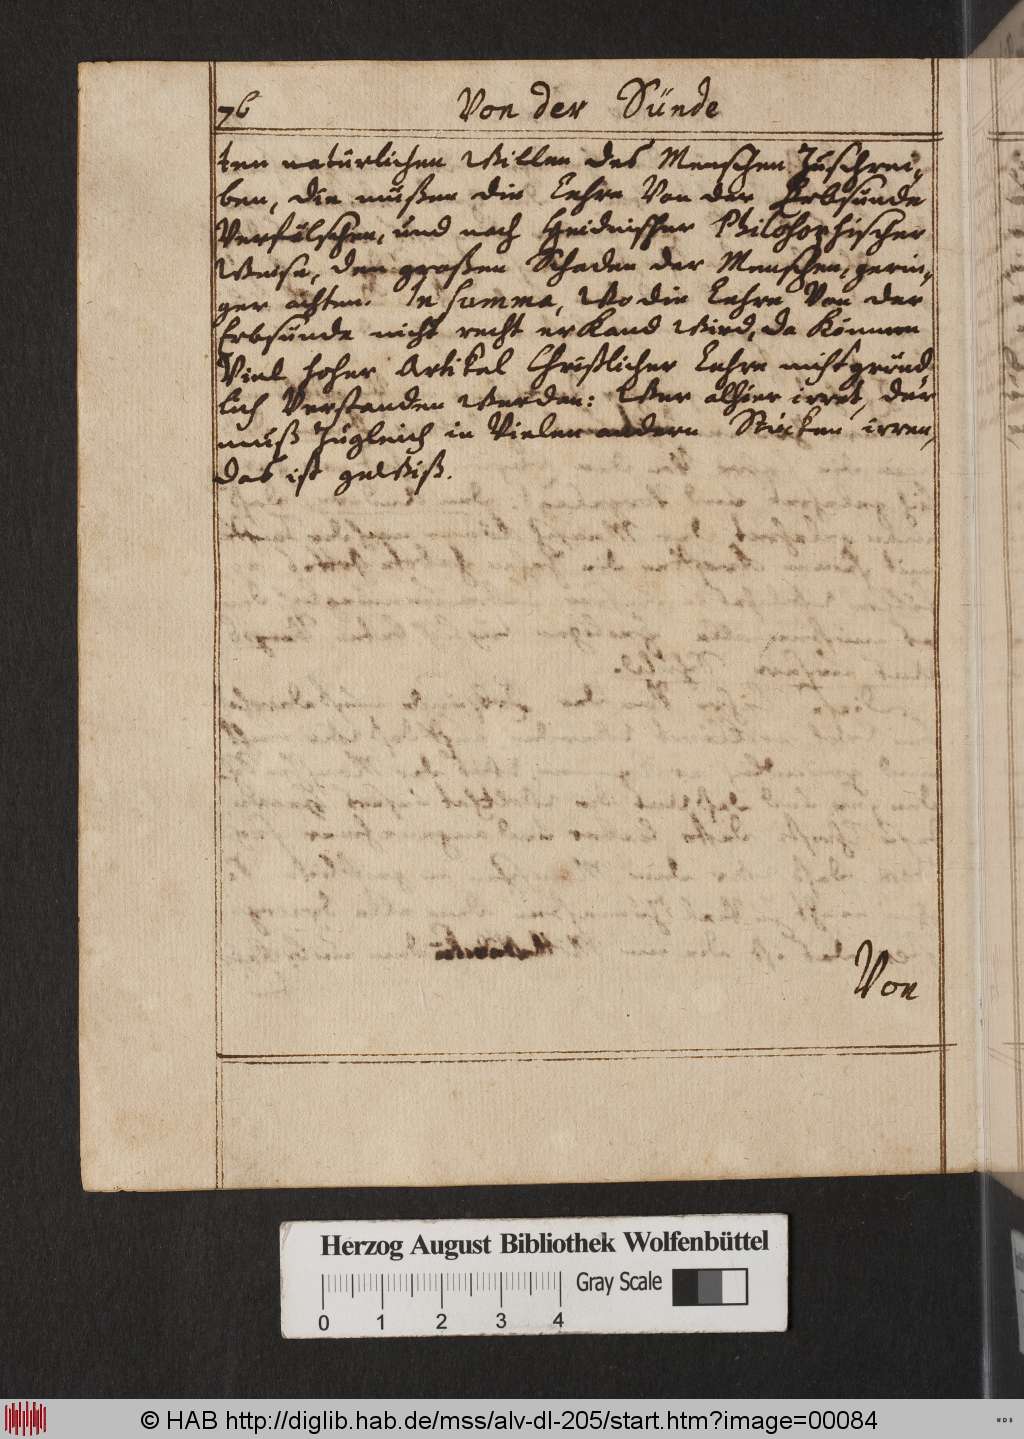 76
Von der Sünde
ten natürlichen Willen des Menschen zuschrei,
ben, die müßen die Lehre Von der Erbsünde
Verfälschen, und nach Heidnischer Philosophischer
Weise, den großen Schaden der Menschen, gerin,
ger achten. In summa, Wo die Lehre Von der
Erbsünde nicht recht erkand Wird, da können
Viel hoher Artikel Christlicher Lehre nicht gründ
lich Verstanden Werden: Wer alhier irret, der
muß zugleich in Vielen andern Stücken irren,
das ist geWiß.
Von
Herzog August Bibliothek Wolfenbüttel
Gray Scale
0 1 2 3 4
© HAB http://diglib.hab.de/mss/alv-dl-205/start.htm?image=00084